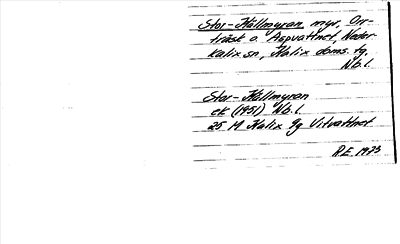 Stor-Kallmyran myr, On-
träsk o. Aspvattnet, Neder-
kalix sn, Kalix doms. tg.
Nb. l.
Stor-Kallmyran
ek (1951) Nb. l.
25 M Kalix 9g Vitvattnet
R.E. 1973